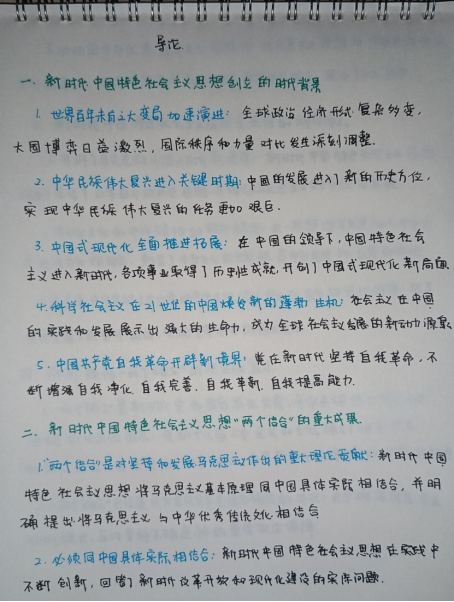 导论
一、新时代中国特色社会主义思想创立的时代背景
1. 世界百年未有之大变局加速演进：全球政治经济形式复杂多变，
大国博弈日益激烈，国际秩序和力量对比发生深刻调整．
2. 中华民族伟大复兴进入关键时期：中国的发展进入了新的历史方位，
实现中华民族伟大复兴的任务更加艰巨．
3. 中国式现代化全面推进拓展：在中国的领导下，中国特色社会
主义进入新时代，各项事业取得了历史性成就，开创了中国式现代化新局面
4. 科学社会主义在21世纪的中国焕发新的蓬勃生机：社会主义在中国
的实践和发展展示出强大的生命力，成为全球社会主义发展的新动力源泉
5. 中国共产党自我革命开辟新境界：党在新时代坚持自我革命，不
断增强自我净化．自我完善．自我革新．自我提高能力．
二、新时代中国特色社会主义思想“两个结合”的重大成果．
1. “两个结合”是对坚持和发展马克思主义作出的重大理论贡献：新时代中国
特色社会主义思想将马克思主义基本原理同中国具体实际相结合，并明
确提出将马克思主义与中华优秀传统文化相结合
2. 必须同中国具体实际相结合：新时代中国特色社会主义思想在实践中
不断创新，回答了新时代改革开放和现代化建设的实际问题．